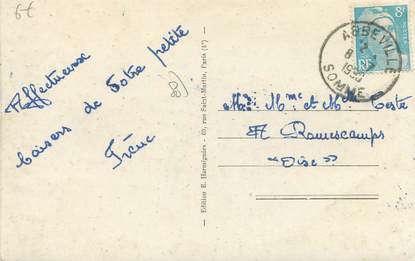 6€
Affectueux
baisers de votre petite
Irène
80
Edition R. Harmignies - 69, rue Saint-Martin, Paris (4ᵉ)
8F
RF
ABBEVILLE
8
1950
SOMME
Mᵐᵉ et Mˡˡᵉ Teste
A Romescamps
"Oise"